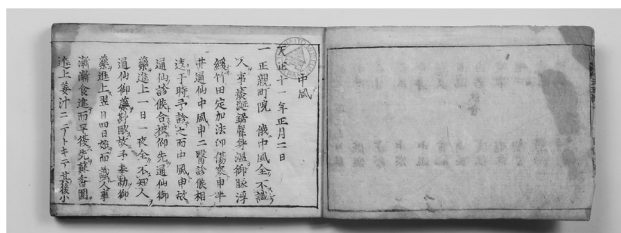 中風
天正十一年正月二日
一 正親町院 俄中風全不識
人事痰涎
御脉浮
緩竹田定加法印傷寒申半
井通仙中風申二醫診俄相
違于時予診之而中風申故
通仙診俄合
御先通仙御
藥進上一日一夜全不知人
通仙御藥
故予奉勅御
藥進上翌日四日
而識人事
漸漸食進而平復先蘇香圓
進上姜汁ニテトキテ其後小